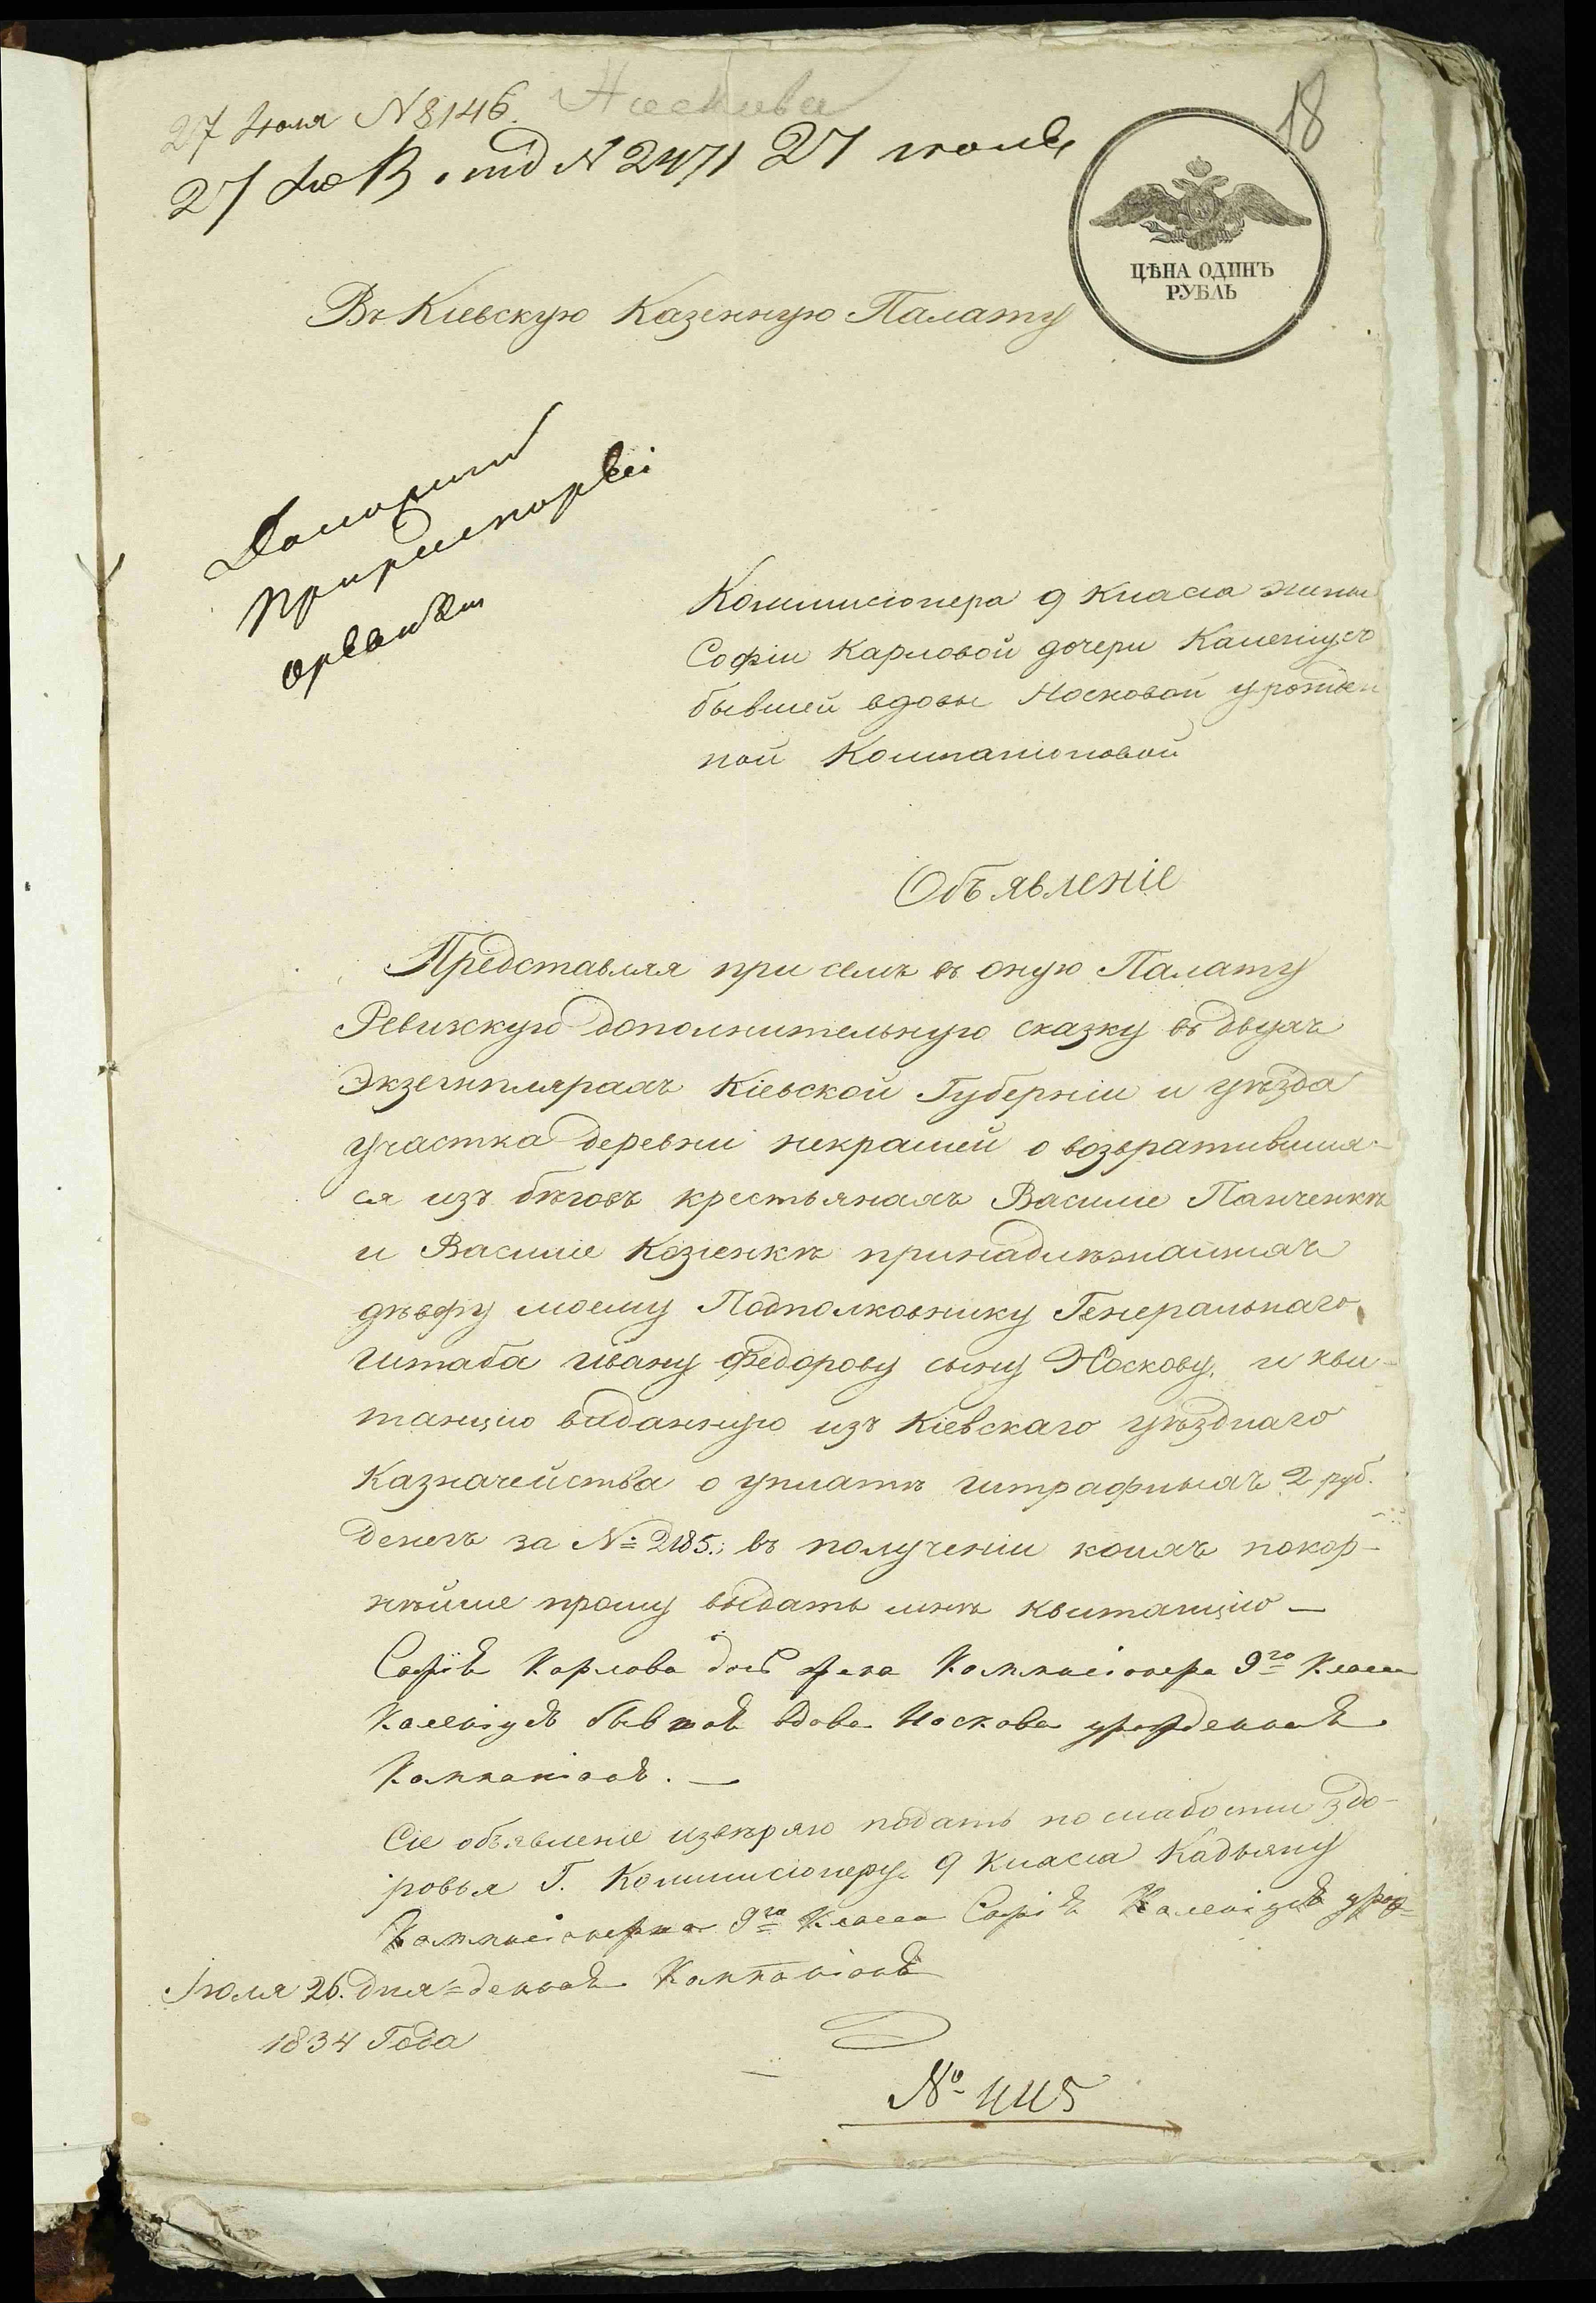 27 Июля N 8146. Носкова
18
27 Июля N 2471 27 июля
ЦѢНА ОДИНЪ
РУБЛЬ
Въ Кіевскую Казенную Палату
Коммисіонера 9 класса жены
Софіи Карловой дочери
бывшей вдовы Носковой урожден
ной Компаніоновой
Объявленіе
Представляя при семъ въ оную Палату
Ревижскую дополнительную сказку въ двухъ
Экземплярахъ Кіевской Губерніи и уѣзда
участка деревни некрашей о возвратившыя-
ся изъ бѣговъ крестьянахъ Василіе Панченкѣ
и Василіе Козіенкѣ принадлѣжащихъ
дѣверу моему Подполковнику Генеральнаго
штаба Ивану Федорову сыну Носкову, и кви-
танцію виданную изъ Кіевскаго уѣзднаго
Казначейства о уплатѣ штрафныхъ 2 руб.
денегъ за № 2185.; въ полученіи коихъ покор-
нѣйше прошу выдать мнѣ квитанцію —
Софія Карлова дочь жена Коммисіонера 9го Класса
бывшая вдова Носкова урожденная
Компаніонъ. —
Сіе объявленіе извѣряю подать по слабости здо-
ровья Г. Коммисіонеру 9 Класса Кадьяну
Коммисіонерша 9го Класса Софія урож=
Іюля 26. дня =денная Компаніонъ
1834 Года
№ 445